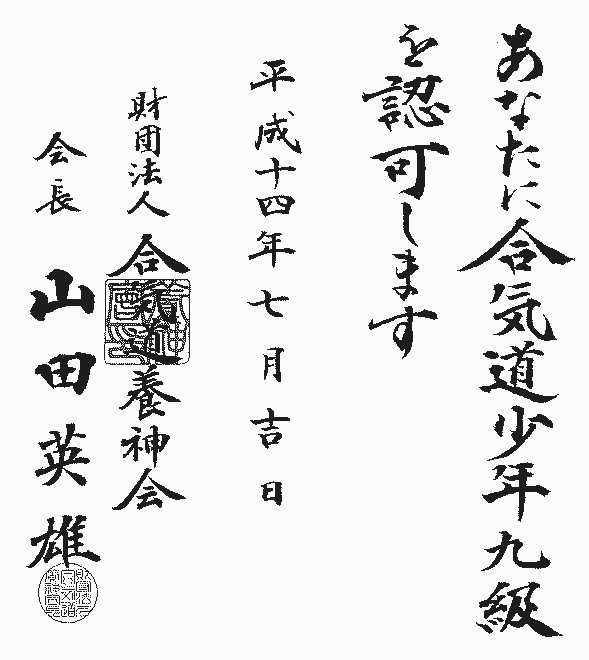 あなたに合気道少年九級
を認可します
平成十四年七月吉日
財団法人合気道養神会
会長山田英雄